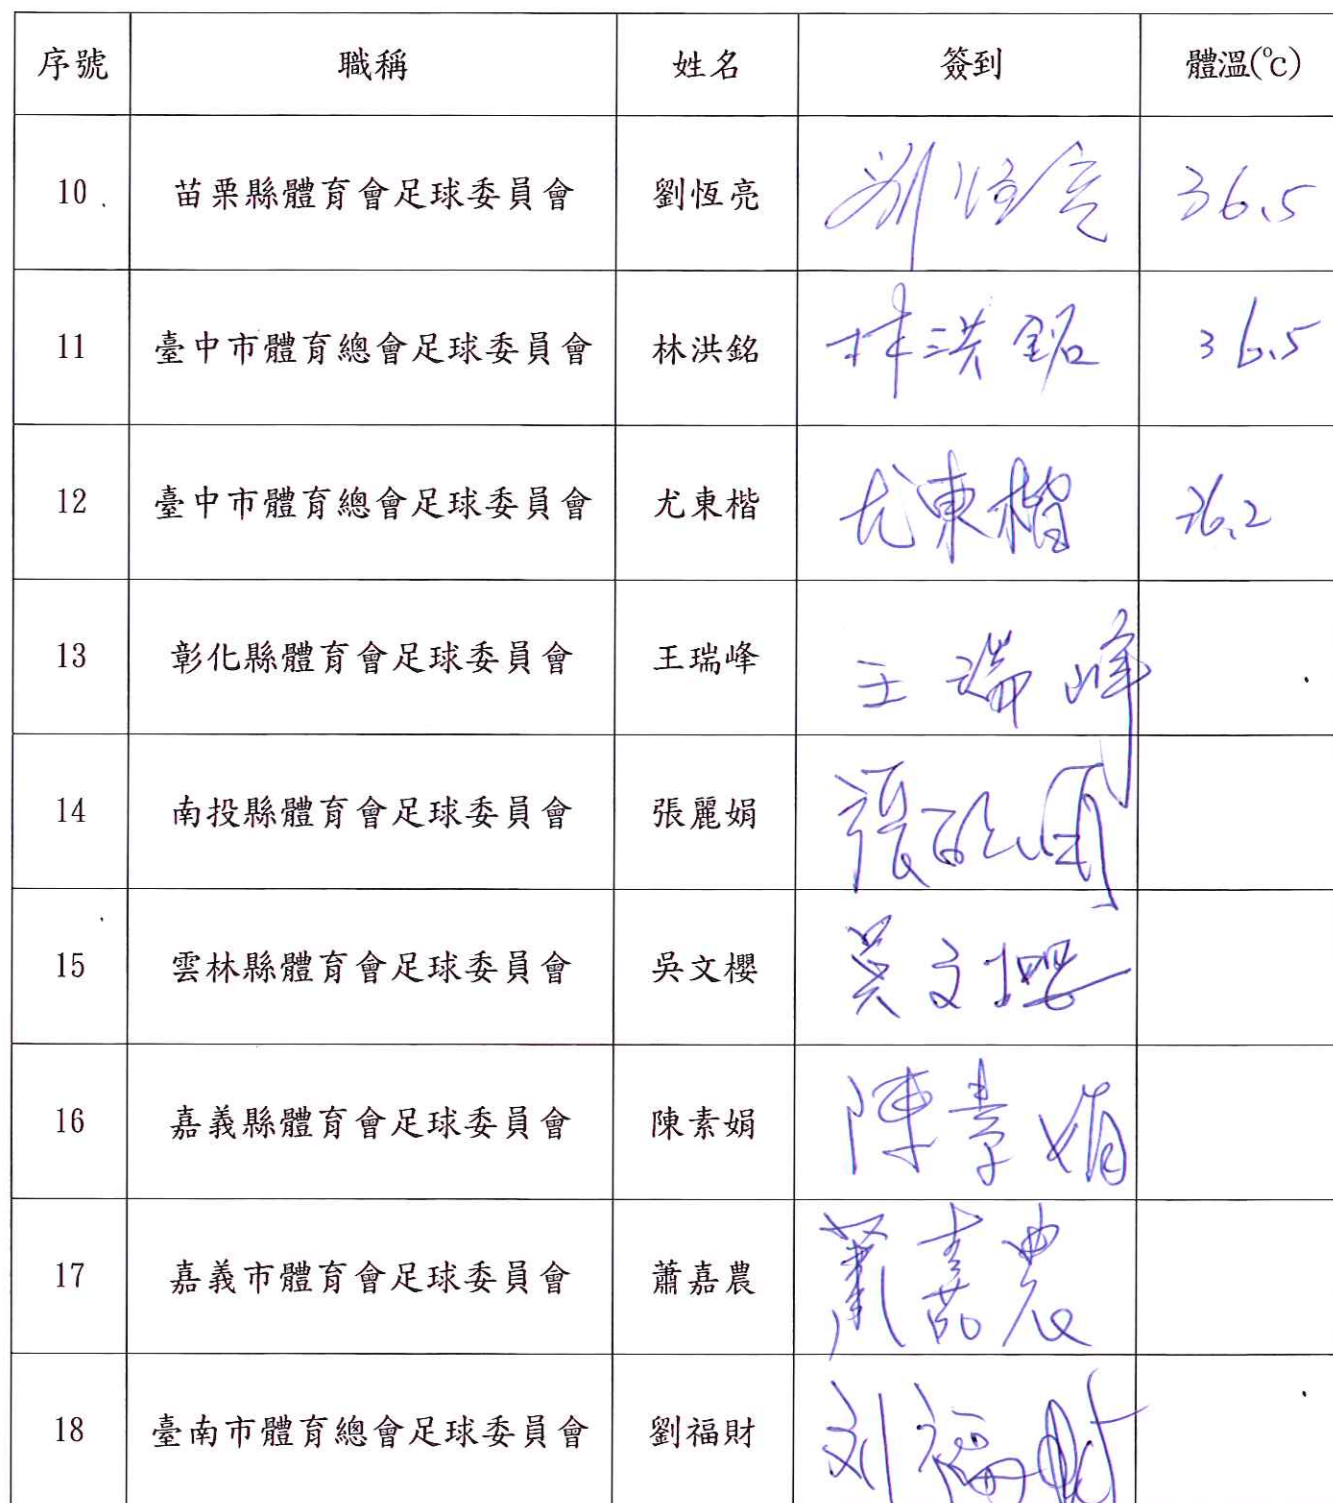 序號 職稱 姓名 簽到 體溫(℃)
10 苗栗縣體育會足球委員會 劉恆亮 劉恆亮 36.5
11 臺中市體育總會足球委員會 林洪銘 林洪銘 36.5
12 臺中市體育總會足球委員會 尤東楷 尤東楷 36.2
13 彰化縣體育會足球委員會 王瑞峰 王瑞峰
14 南投縣體育會足球委員會 張麗娟 張麗娟
15 雲林縣體育會足球委員會 吳文櫻 吳文櫻
16 嘉義縣體育會足球委員會 陳素娟 陳素娟
17 嘉義市體育會足球委員會 蕭嘉農 蕭嘉農
18 臺南市體育總會足球委員會 劉福財 刘福財